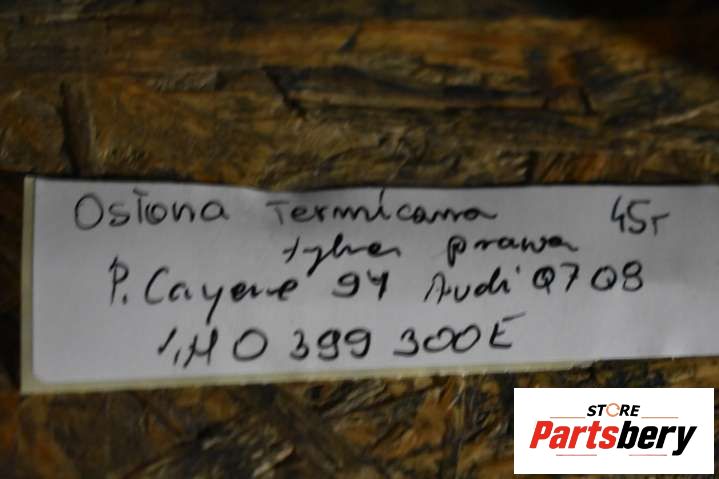 Osłona Termiczna 45r
tylna prawa
P. Cayene 9Y Audi Q7 Q8
399 300E
STORE
Partsbery